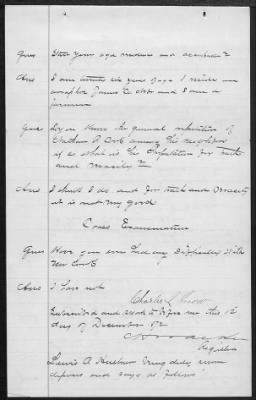 Ques State your age residence and occupation
Ans I am twenty six years of age I reside in
James C and I am a
farmer
Ques Do you know the general reputation of
among his neighbors
if so what is the reputation for truth
and veracity
Ans I think I do and for truth and veracity
it is not very good
Cross Examination
Ques Have you ever had any difficulty with
Ans I have not
Charles Snow
Subscribed and sworn to before me this 12
day of December 1872
Register
Lewis A being duly sworn
deposes and says as follows